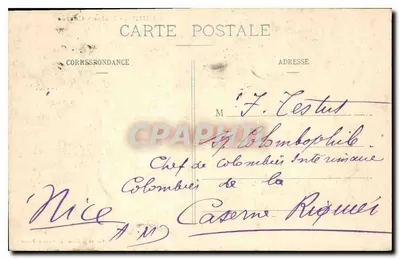 CARTE POSTALE
CORRESPONDANCE
ADRESSE
M F. Testut
Colombophile
Chef de Colombier Interimaire
Colombier de la
Caserne Riquier
Nice
A. M.
CPARAMA